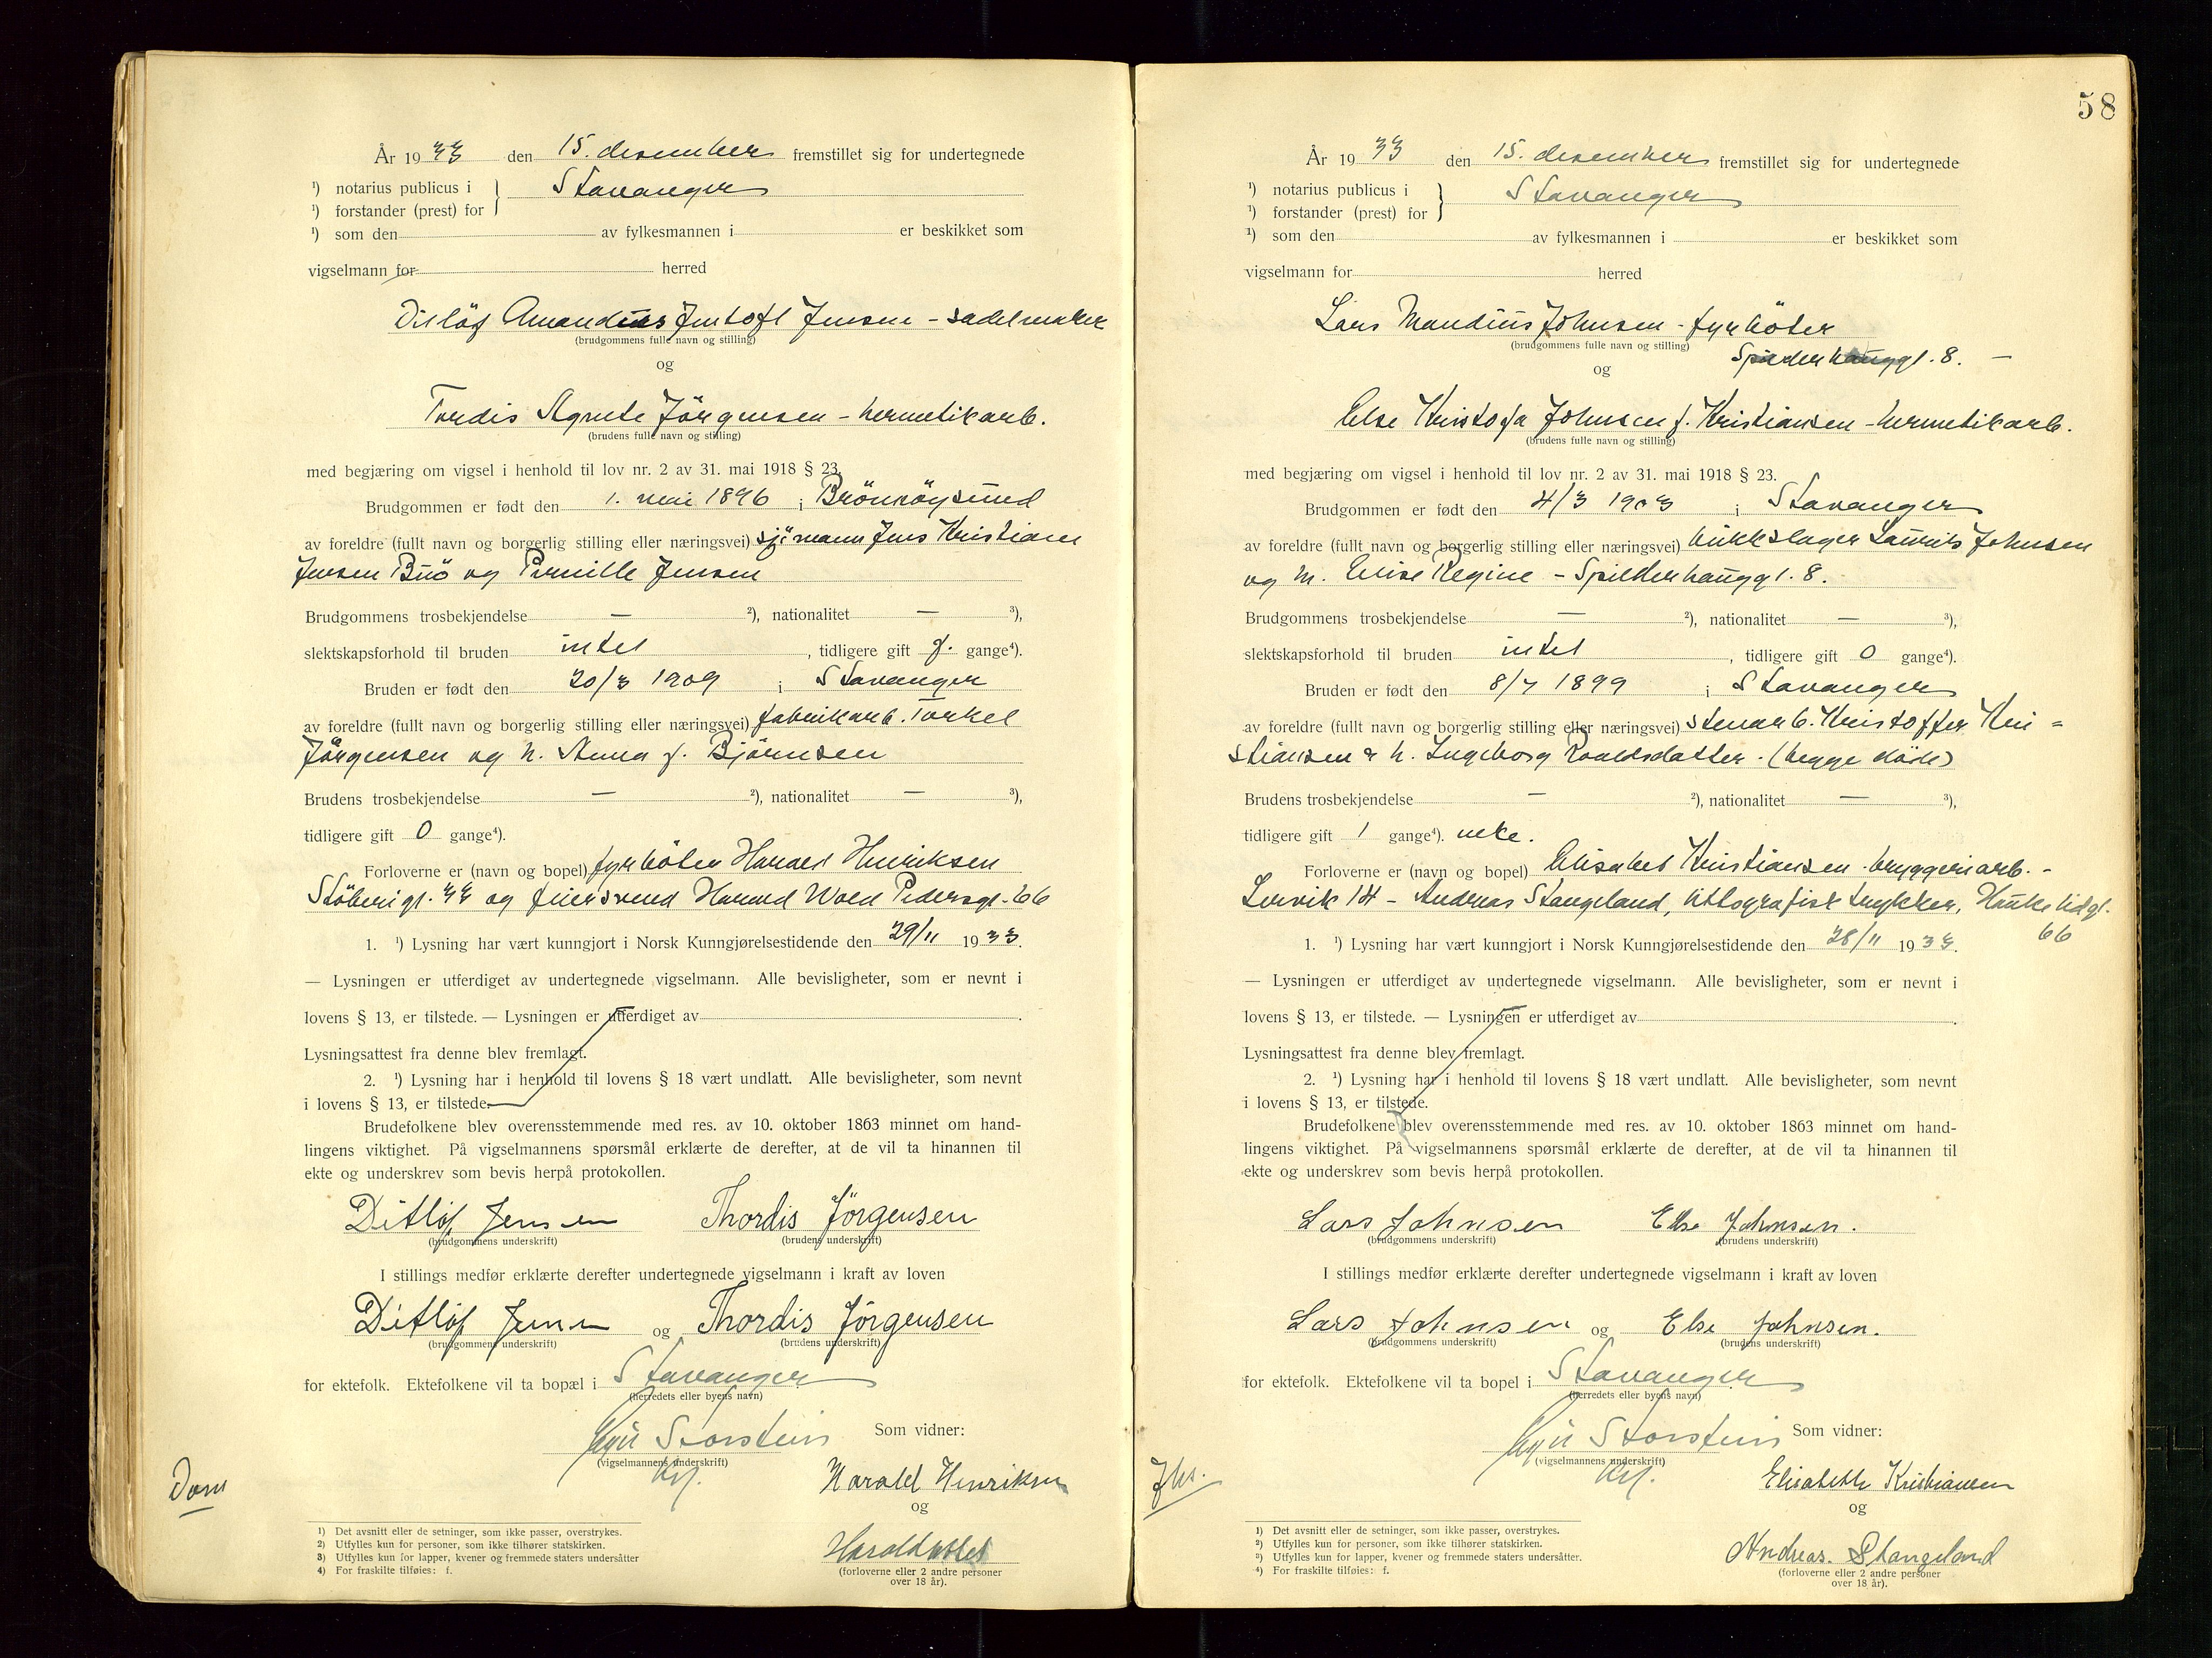 År 19 33 den 15. desember fremstillet sig for undertegnede
¹) notarius publicus i } Stavanger
¹) forstander (prest) for
¹) som den av fylkesmannen i er beskikket som
vigselmann for herred
Ditlöf Amandus Jentoft Jensen - sadelmaker
(brudgommens fulle navn og stilling)
og
Tordis Agnete Jörgensen - hermetikarb.
(brudens fulle navn og stilling)
med begjæring om vigsel i henhold til lov nr. 2 av 31. mai 1918 § 23.
Brudgommen er født den 1. mai 1896 i Brönnöysund
av foreldre (fullt navn og borgerlig stilling eller næringsvei) sjömann Jens Kristian
Jensen Buö og Pernille Jensen
Brudgommens trosbekjendelse — ²), nationalitet — ³),
slektskapsforhold til bruden intet , tidligere gift f. gange⁴).
Bruden er født den 20/3 1909 i Stavanger
av foreldre (fullt navn og borgerlig stilling eller næringsvei) fabrikarb. Torkel
Jörgensen og h. Anna f. Björnsen
Brudens trosbekjendelse — ²), nationalitet — ³),
tidligere gift 0 gange⁴).
Forloverne er (navn og bopel) fyrböter Harald Henriksen
Stöberigt. 33 og feiersvend Harald Wold Pedersgt. 66
1. ¹) Lysning har vært kunngjort i Norsk Kunngjørelsestidende den 29/11 19 33.
— Lysningen er utferdiget av undertegnede vigselmann. Alle bevisligheter, som er nevnt i
lovens § 13, er tilstede. — Lysningen er utferdiget av
Lysningsattest fra denne blev fremlagt.
2. ¹) Lysning har i henhold til lovens § 18 vært undlatt. Alle bevisligheter, som nevnt
i lovens § 13, er tilstede.
Brudefolkene blev overensstemmende med res. av 10. oktober 1863 minnet om hand-
lingens viktighet. På vigselmannens spørsmål erklærte de derefter, at de vil ta hinannen til
ekte og underskrev som bevis herpå protokollen.
Ditlöf Jensen Thordis Jörgensen
(brudgommens underskrift) (brudens underskrift)
I stillings medfør erklærte derefter undertegnede vigselmann i kraft av loven
Ditlöf Jensen og Thordis Jörgensen
(brudgommens underskrift) (brudens underskrift)
for ektefolk. Ektefolkene vil ta bopæl i Stavanger
(herredets eller byens navn)
Storstein Som vidner:
(vigselmannens underskrift)
Harald Henriksen
Dom
og
Harald
(forloverne eller 2 andre personer
over 18 år).
1) Det avsnitt eller de setninger, som ikke passer, overstrykes.
2) Utfylles kun for personer, som ikke tilhører statskirken.
3) Utfylles kun for lapper, kvener og fremmede staters undersåtter
4) For fraskilte tilføies: f.
58
År 19 33 den 15. desember fremstillet sig for undertegnede
¹) notarius publicus i } Stavanger
¹) forstander (prest) for
¹) som den av fylkesmannen i er beskikket som
vigselmann for herred
Lars Mandius Johnsen - fyrböter
(brudgommens fulle navn og stilling)
Spilderhauggt. 8. —
og
Else Kristofa Johnsen f. Kristiansen - hermetikarb.
(brudens fulle navn og stilling)
med begjæring om vigsel i henhold til lov nr. 2 av 31. mai 1918 § 23.
Brudgommen er født den 4/3 1903 i Stavanger
av foreldre (fullt navn og borgerlig stilling eller næringsvei) blikkslager Laurits Johnsen
og h. Elise Regine - Spilderhauggt. 8.
Brudgommens trosbekjendelse — ²), nationalitet — ³),
slektskapsforhold til bruden intet , tidligere gift 0 gange⁴).
Bruden er født den 8/7 1899 i Stavanger
av foreldre (fullt navn og borgerlig stilling eller næringsvei) stenarb. Kristoffer Kri-
stiansen & h. Ingeborg Roaldsdatter. (begge döde)
Brudens trosbekjendelse — ²), nationalitet — ³),
tidligere gift 1 gange⁴). enke.
Forloverne er (navn og bopel) Elisabet Kristiansen - bryggeriarb. -
Lervik 14 - Andreas Stangeland, littografisk trykker, Haukelidgt.
66
1. ¹) Lysning har vært kunngjort i Norsk Kunngjørelsestidende den 28/11 19 33.
— Lysningen er utferdiget av undertegnede vigselmann. Alle bevisligheter, som er nevnt i
lovens § 13, er tilstede. — Lysningen er utferdiget av
Lysningsattest fra denne blev fremlagt.
2. ¹) Lysning har i henhold til lovens § 18 vært undlatt. Alle bevisligheter, som nevnt
i lovens § 13, er tilstede.
Brudefolkene blev overensstemmende med res. av 10. oktober 1863 minnet om hand-
lingens viktighet. På vigselmannens spørsmål erklærte de derefter, at de vil ta hinannen til
ekte og underskrev som bevis herpå protokollen.
Lars Johnsen Else Johnsen.
(brudgommens underskrift) (brudens underskrift)
I stillings medfør erklærte derefter undertegnede vigselmann i kraft av loven
Lars Johnsen og Else Johnsen.
(brudgommens underskrift) (brudens underskrift)
for ektefolk. Ektefolkene vil ta bopel i Stavanger
(herredets eller byens navn)
Storstein Som vidner:
(vigselmannens underskrift)
Elisabeth Kristiansen
og
Andreas. Stangeland
(forloverne eller 2 andre personer
over 18 år).
1) Det avsnitt eller de setninger, som ikke passer, overstrykes.
2) Utfylles kun for personer, som ikke tilhører statskirken.
3) Utfylles kun for lapper, kvener og fremmede staters undersåtter.
4) For fraskilte tilføies: f.